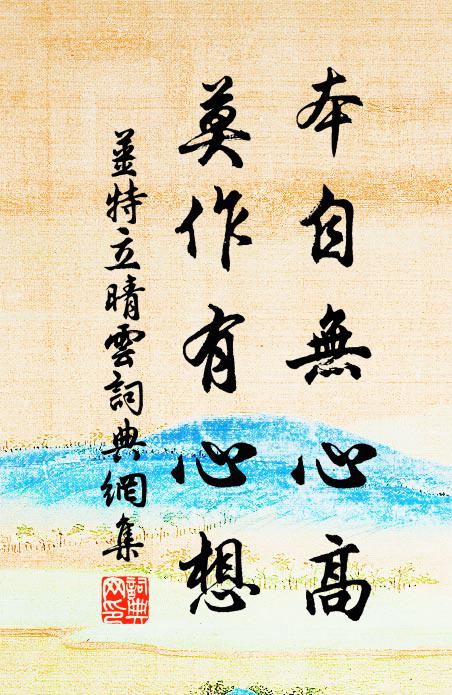 本自無心高
莫作有心想
姜特立晴雲詞典網集
詞典網印